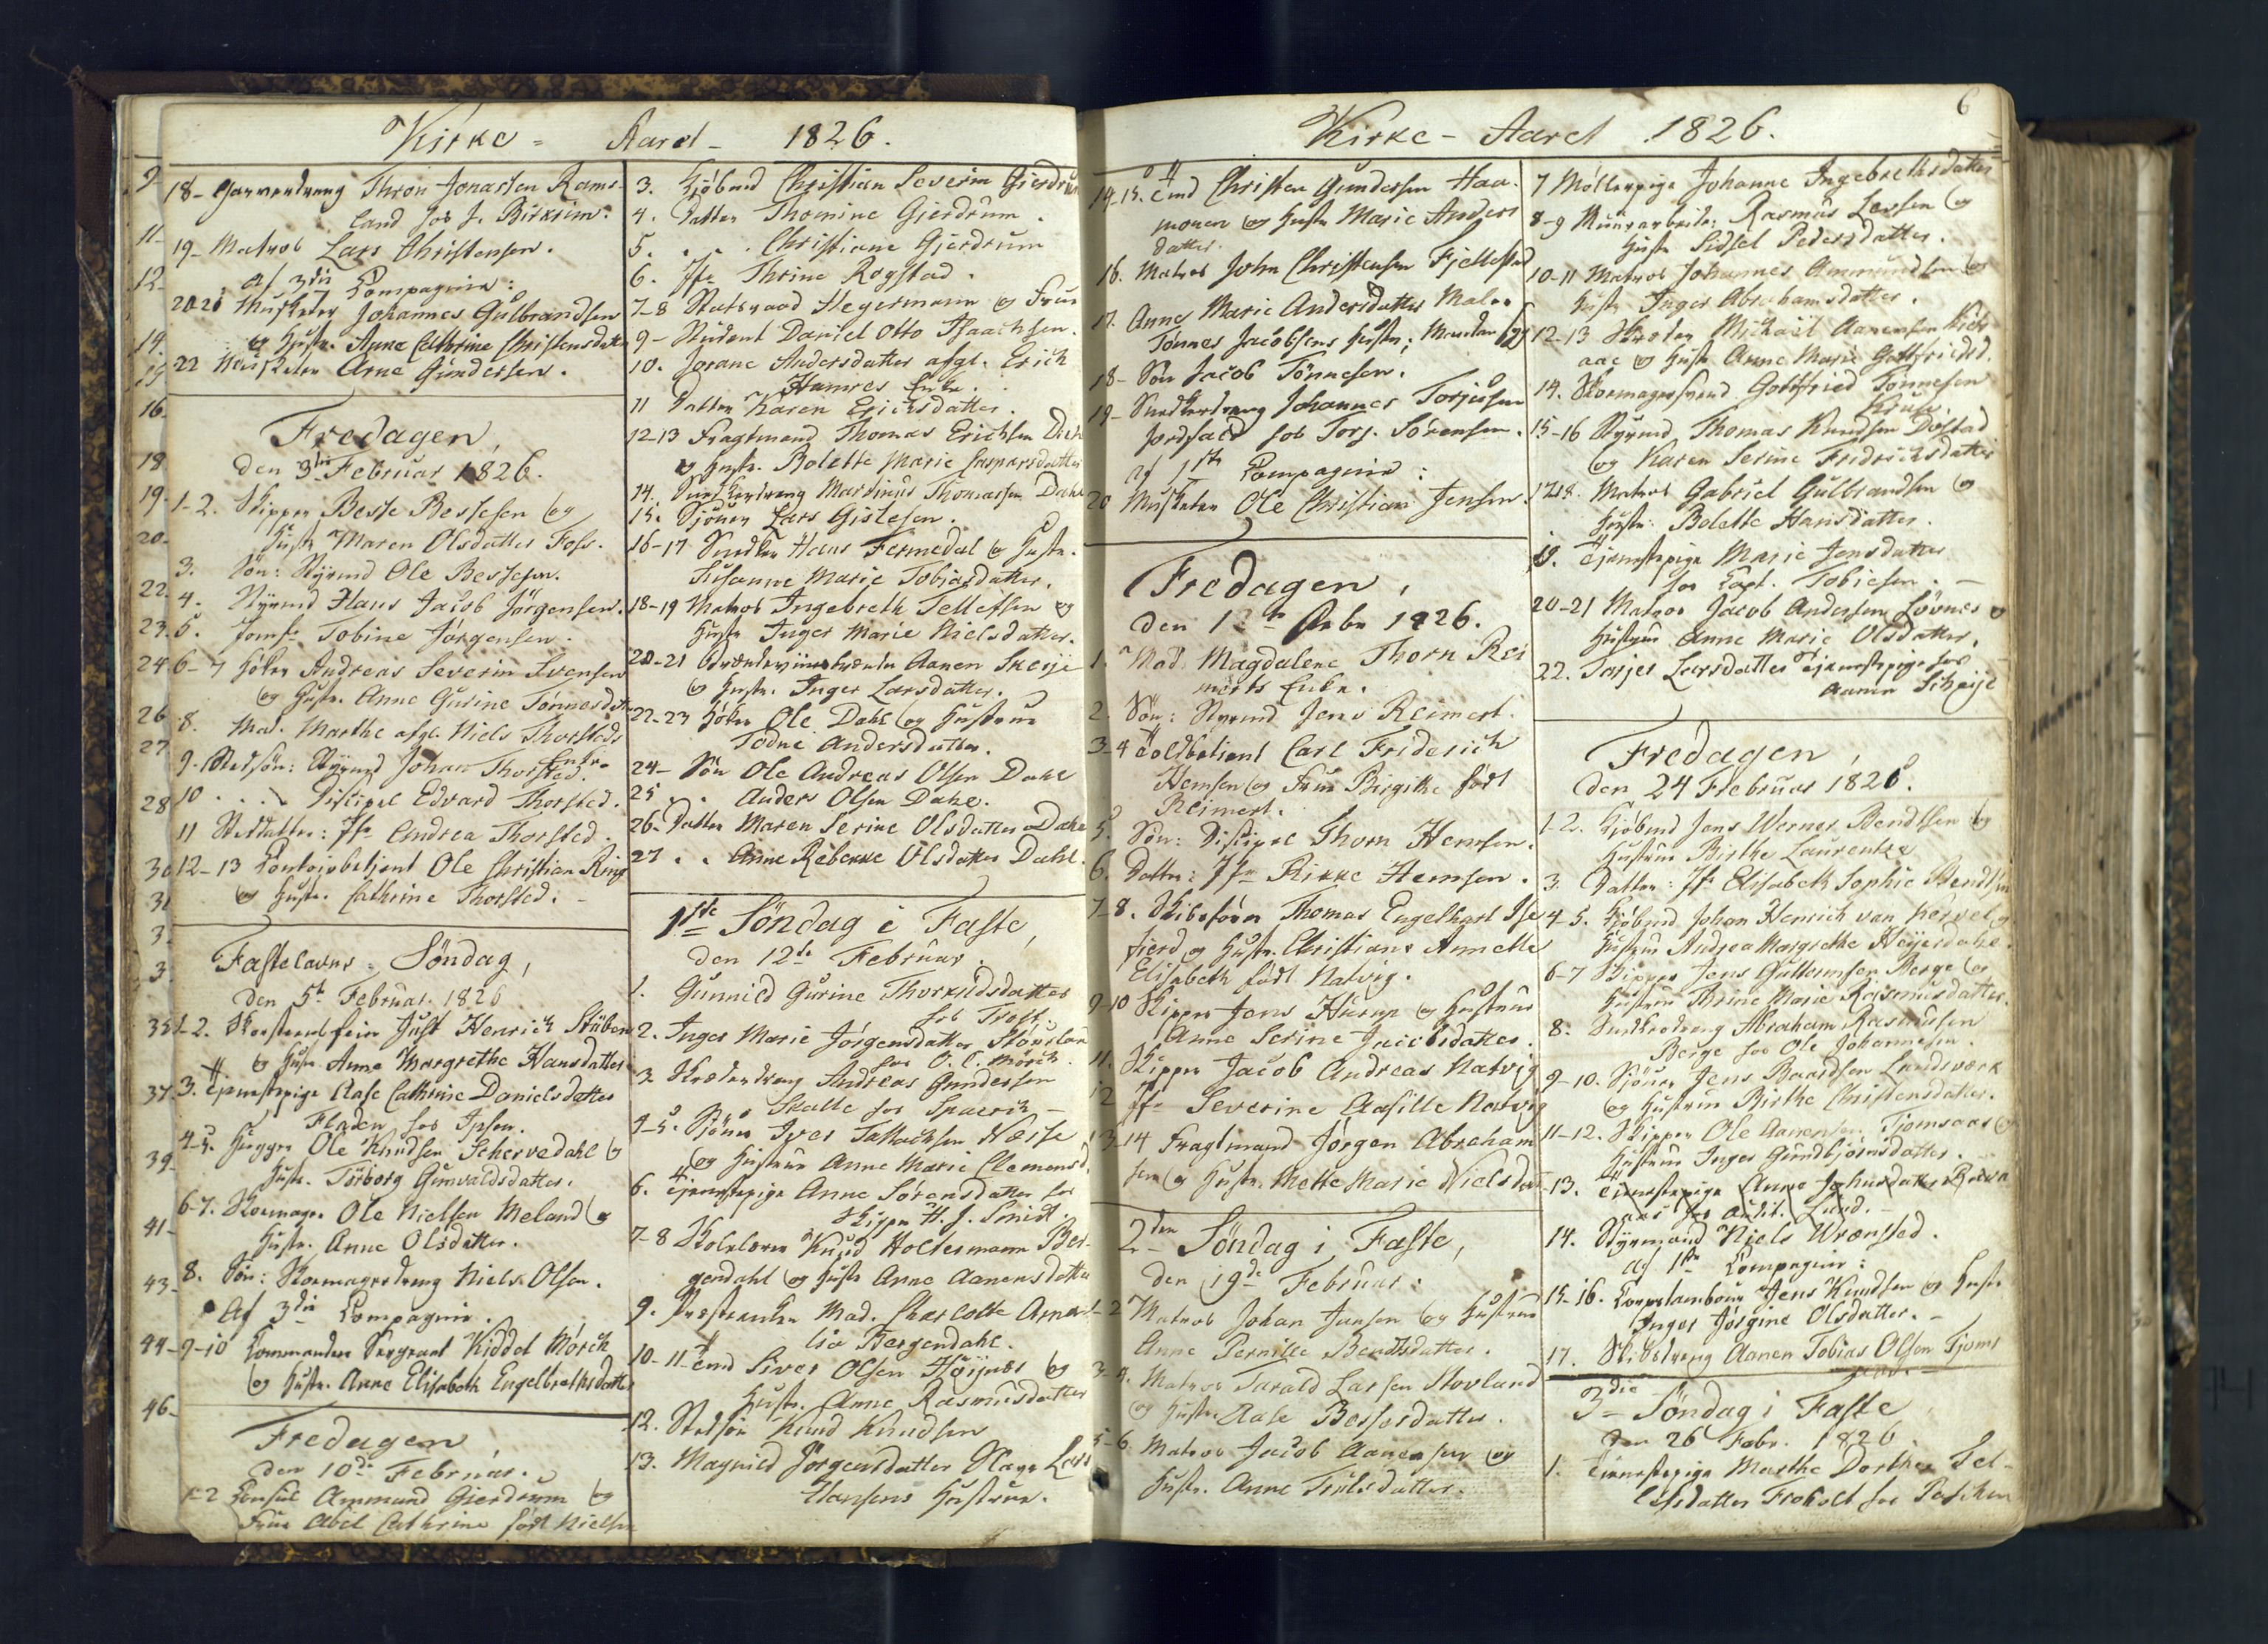 Kirke - Aaret - 1826.
18 - Garverdreng Thron Jonassen Rams-
land hos J. Birkrem.
19 - Matros Lars Christensen.
af 3die Compagnie:
20-21 Musketer Johannes Gulbrandsen
og Hustr. Anne Cathrine Christensdatter
22 Musketer Arne Gundersen.
Fredagen,
den 3die Februar 1826.
1-2. Skipper Besse Bessesen og
Hustr. Maren Olsdatter Foss.
3. Søn: Styrmd Ole Bessesen.
4. Styrmd Hans Jacob Jørgensen.
5. Jomfr. Tobine Jørgensen.
6-7 Høker Andreas Severin Svensen
og Hustr. Anne Gurine Tønnesdatter
8. Mad. Marthe afgl. Niels Thorsteds
Enke.
9. Stedsøn: Styrmd Johan Thorsted.
10 . . . Discipel Edvard Thorsted.
11 Steddatter: Jfr. Andrea Thorsted.
12-13 Contoirbetjent Ole Christian Ring
og Hustr. Cathrine Thorsted. -
Fastelavns - Søndag,
den 5te Februar 1826
1-2. Skorsteensfeier Just Henrich Stüben
og Hustr. Anne Margrethe Hansdatter
3. Tjenestepige Aase Cathrine Danielsdatter
Fladen hos Ipsen.
4-5. Hugger Ole Knudsen Schervedahl og
Hustr. Torborg Gunvaldsdatter.
6-7. Skomager Ole Nielsen Meland og
Hustr. Anne Olsdatter.
8. Søn: Skomagerdreng Niels Olsen.
Af 3die Compagnie.
9-10 Commandeer Sergeant Kiddel Mørch
og Hustr. Anne Elisabeth Engelbrethsdatter
Fredagen,
den 10de Februar.
1-2 Consul Ammund Gjerdrum og
Frue Abel Cathrine født Nielsen
3. Kjøbmd Christian Severin Gjerdrum
4. Datter Thomine Gjerdrum.
5. . . . Christiane Gjerdrum
6. Jfr. Thrine Rogstad.
7-8 Statsraad Hegermann og Frue
9 - Student Daniel Otto Isaachsen.
10. Jorane Andersdatter afgl. Erich
Hamres Enke.
11 Datter Karen Erichsdatter.
12-13 Fragtmand Thomas Erichsen Dahl
og Hustr. Bolette Marie Caspersdatter
14. Snedkerdreng Mardinus Thomassen Dahl
15. Sjømd Lars Gislesen.
16-17 Snedker Hans Fermedal og Hustr.
Susanne Marie Tobiasdatter.
18-19 Matros Ingebreth Tellefsen og
Hustr. Inger Marie Nielsdatter.
20-21 Brændeviinsbrænder Aanen Skeije
og Hustr. Inger Larsdatter.
22-23 Høker Ole Dahl og Hustrue
Todne Andersdatter.
24 - Søn Ole Andreas Olsen Dahl
25 . . Anders Olsen Dahl.
26 - Datter Maren Serine Olsdatter Dahl
27 . . Anne Rebekke Olsdatter Dahl.
1ste Søndag i Faste,
den 12te Februar.
1. Gunnild Gurine Thorkildsdatter
hos Troft.
2. Inger Marie Jørgensdatter
hos O. C. Mørch.
3. Skræderdreng Andreas Gundersen
Skalle hos
4-5. Sjømd Iver Tallachsen Næsse
og Hustrue Anne Marie Clemensd.
6. Tjenestepige Anne Sørensdatter hos
Skipper H. J. Smidt.
7-8 Skolelærer Knud Holtermann Ber-
gendahl og Hustr. Anne Aanensdatter
9. Præsteenke Mad. Charlotte Ama-
lia Bergendahl.
10-11 Tmd Siver Olsen Høijnes og
Hustr. Anne Rasmusdatter
12. Stedsøn Knud Knudsen
13. Magnild Jørgensdatter Lars
Hansens Hustrue.
Kirke - Aaret 1826.
6
14-15. Tmd Christen Gundersen Haa-
monen og Hustr. Marie Anders
datter.
16. Matros John Christensen Fjellestad
17. Anne Marie Andersdatter Matros
Tønnes Jacobsens Hustr;
18 - Søn Jacob Tønnesen.
19 - Snedkerdreng Johannes Torjussen
hos Torj. Sørensen.
af 1ste Compagnie:
20 Musketer Ole Christian Jensen.
Fredagen,
den 17de Febr 1826.
1. Mad. Magdalene Thorn Rei
merts Enke.
2. Søn: Styrmd Jens Reimert.
3-4 Toldbetient Carl Friderich
Hemsen og Frue Birgitte født
Reimert.
5. Søn: Discipel Thorn Hemsen.
6. Datter: Jfr. Rikke Hemsen.
7-8. Skibsfører Thomas Engelhart Ise
fierd og Hustr. Christiane Annette
Elisabeth født Natvig.
9-10 Skipper Jens Hurup og Hustrue
Anne Serine Jacobsdatter.
11. Skipper Jacob Andreas Natvig
12 Jfr. Severine Aasille Natvig
13-14 Fragtmand Jørgen Abraham
sen og Hustr. Mette Marie Nielsdatter
2den Søndag i Faste,
den 19de Februar:
1-2 Matros Johan Jansen og Hustrue
Anne Pernille Bendtsdatter.
3-4. Matros Tarald Larsen Stovland
og Hustr. Aase Bessesdatter.
5-6. Matros Jacob Aanensen og
Hustr. Anne Trulsdatter.
7 Møllerpige Johanne Ingebrethsdatter
8-9 Muurarbeider Rasmus Larsen og
Hustr. Sidsel Pedersdatter.
10-11 Matros Johannes Ammundsen og
Hustr. Inger Abrahamsdatter.
12-13 Skræder Michael Aanensen Kirk-
aae og Hustr. Anne Marie Gottfriedsd.
14. Skomagersvend Gottfried Tønnesen
Kruse.
15-16 Styrmd Thomas Knudsen Dostad
og Karen Serine Fridrichsdatter
17-18. Matros Gabriel Gulbrandsen og
Hustr: Bolette Hansdatter.
19. Tjenestepige Marie Jensdatter
hos Capt. Tobiesen. -
20-21 Matros Jacob Andersen Løvnes og
Hustrue Anne Marie Olsdatter.
22. Torjer Larsdatter Tjenestepige hos
Aanen Skeije
Fredagen,
den 24 Februar 1826.
1-2. Kjøbmd Jens Werner Bendtsen og
Hustrue Birthe Laurentze
3. Datter: Jfr. Elisabeth Sophie Bendtsen
4-5. Kjøbmd Johan Henrich van Kervel og
Hustrue Andrea Margrethe Heyerdahl.
6-7 Skipper Jens Guttormsen Berge og
Hustrue Thrine Marie Rasmusdatter.
8. Snedkerdreng Abraham Rasmusen
Berge hos Ole Johannesen.
9-10. Sjømd Jens Baardsen Landsverk
og Hustrue Birthe Christensdatter.
11-12. Skipper Ole Aanensen Tjomsaas og
Hustrue Inger Gundbjørnsdatter.
13. Tjenestepige Anne Johnsdatter
aas hos Audit. Lund. -
14. Styrmand Niels Wrænsted.
af 1ste Compagnie:
15-16. Corpstambour Jens Knudsen og Hustr.
Inger Jørgine Olsdatter. -
17. Skibsdreng Aanen Tobias Olsen Tjoms
aas. -
3die Søndag i Faste
den 26 Febr. 1826.
1. Tjenestepige Marthe Dorthea Tel-
lefsdatter Froholt hos